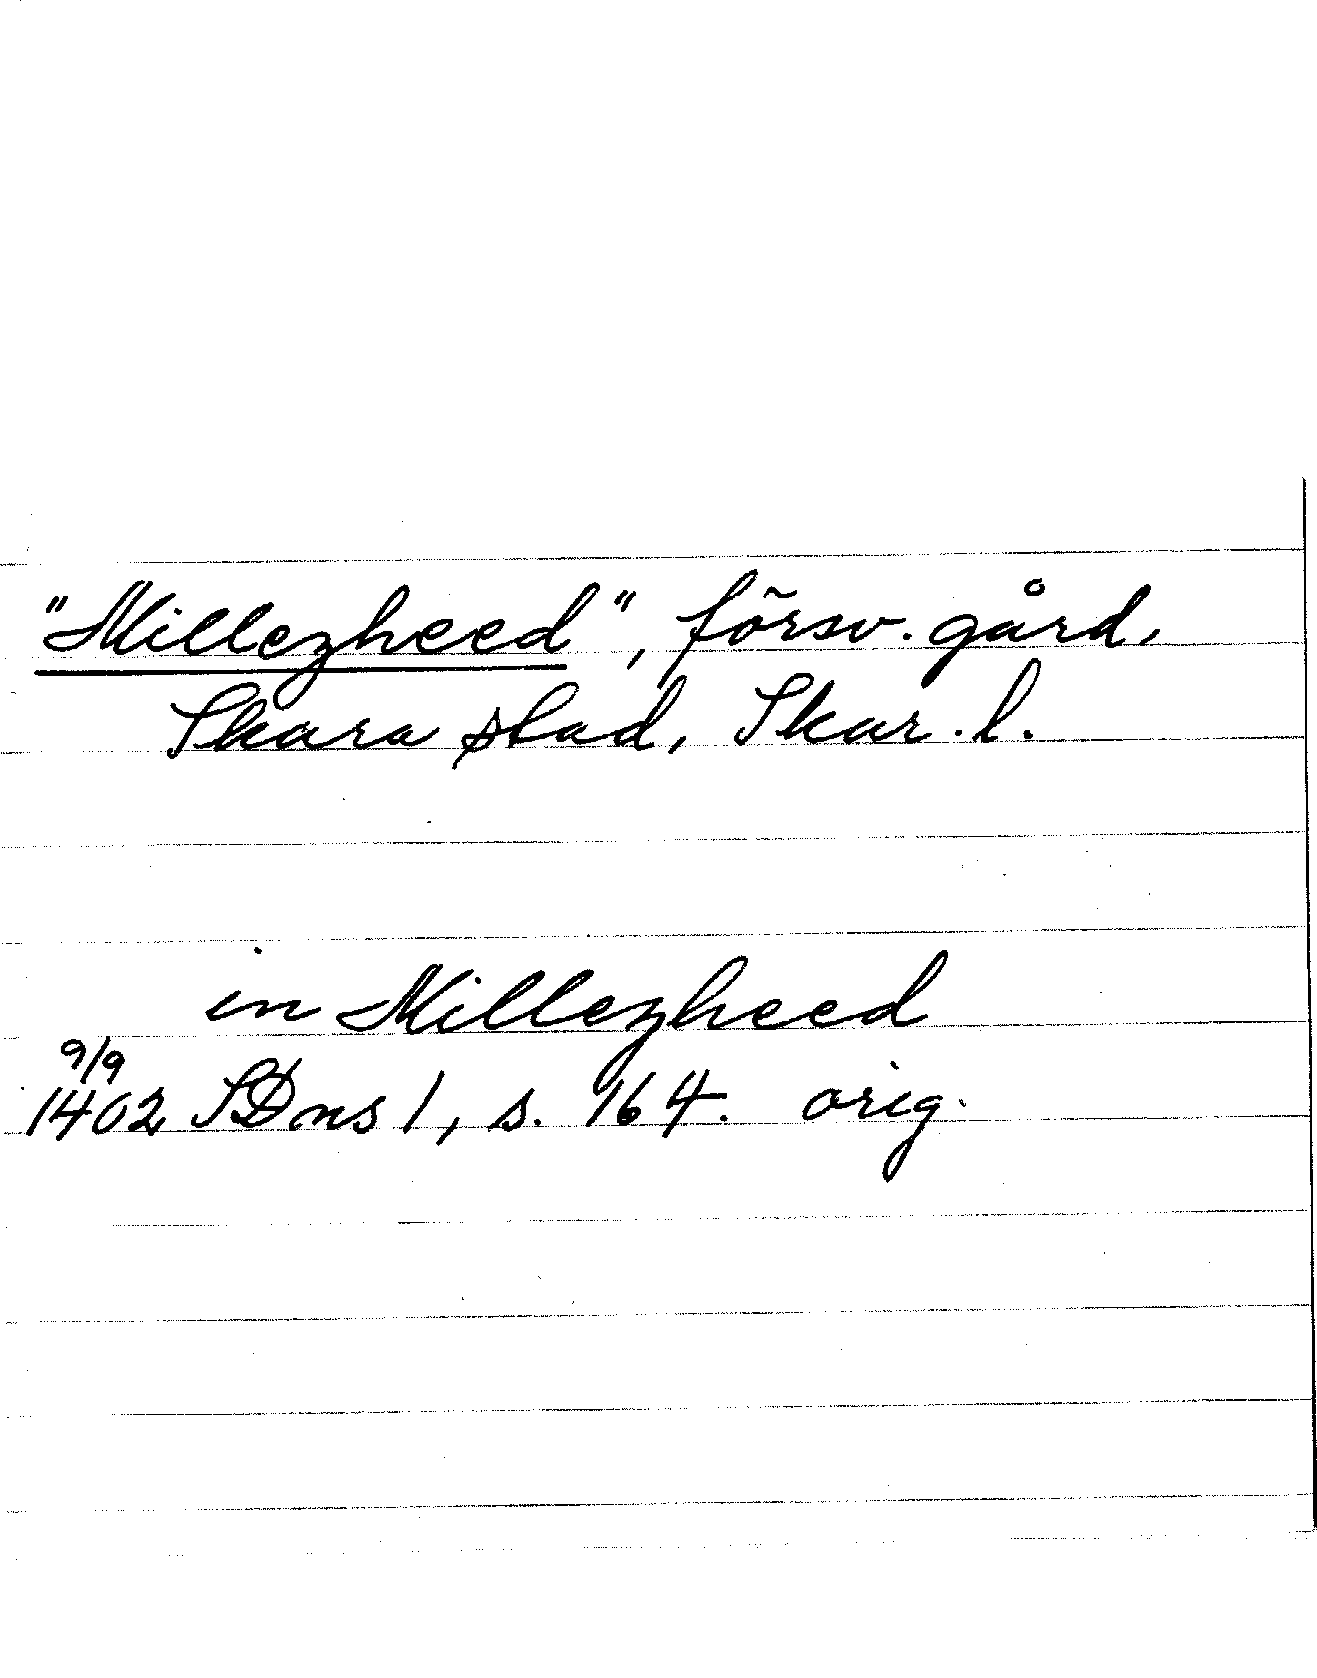 "Millezheed", försv. gård,
Skara stad, Skar. l.
in Millezheed
9/9
1402 SDns 1, s. 164. orig.